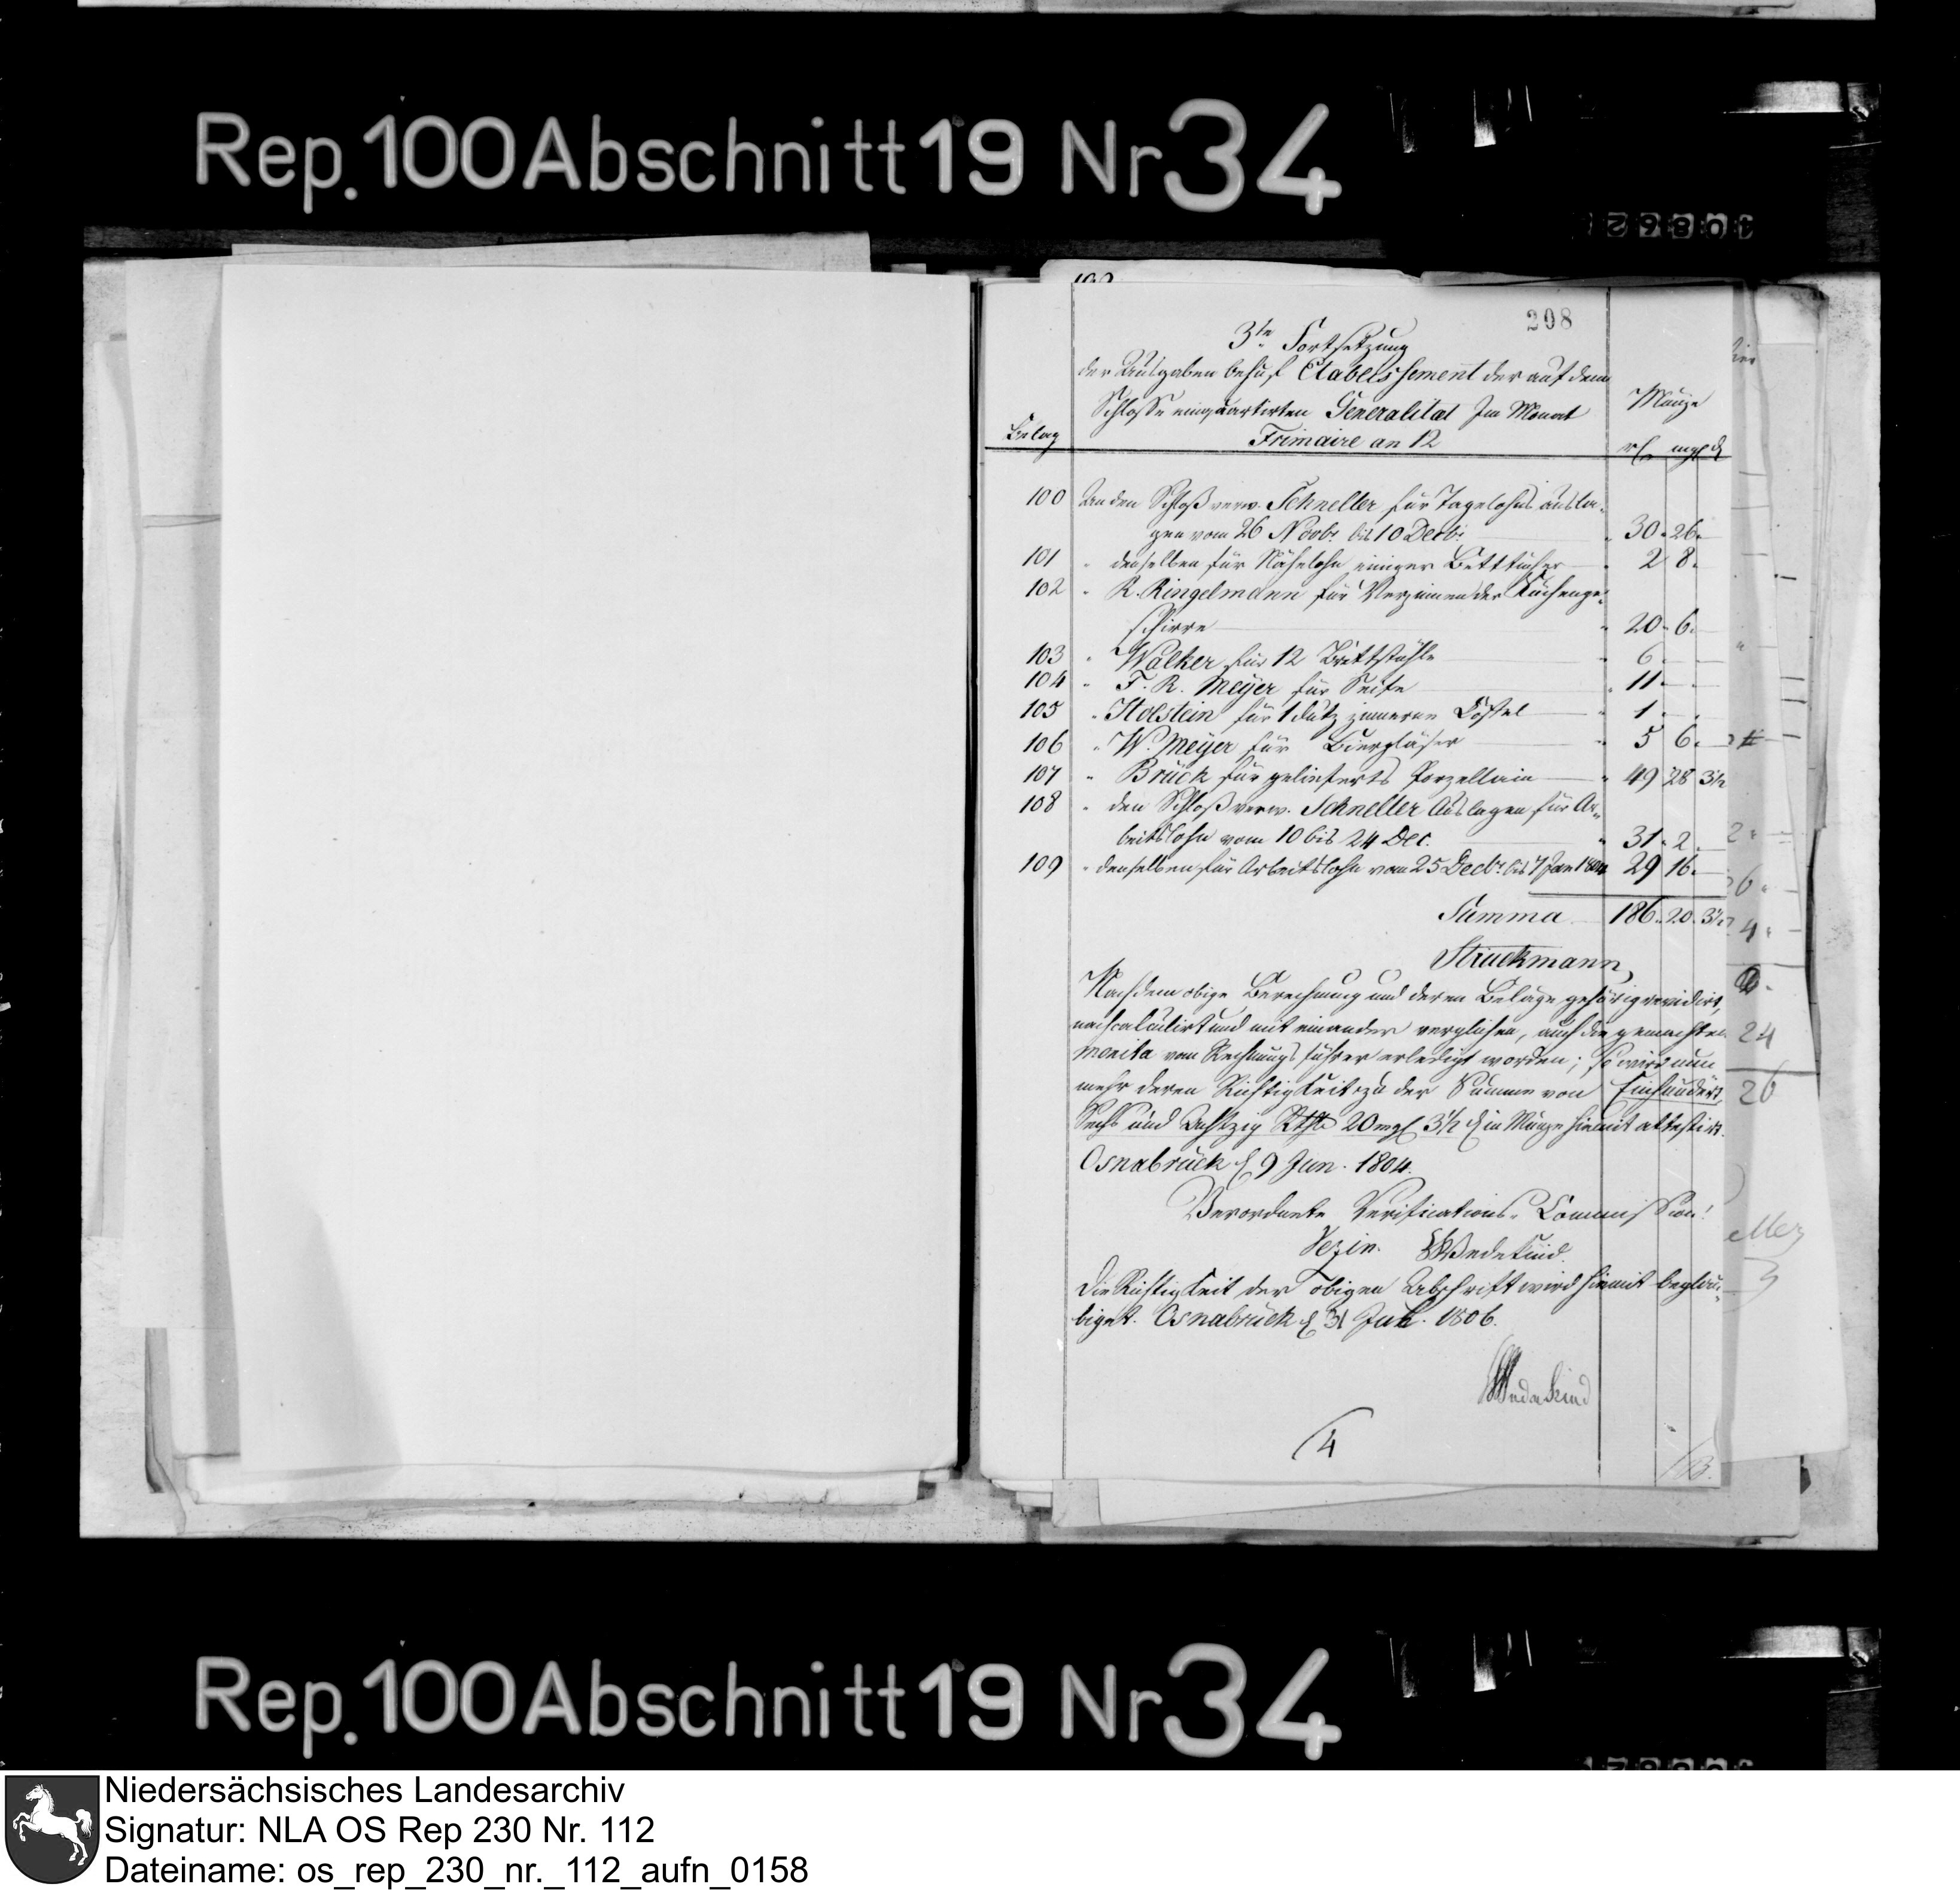 Rep. 100 Abschnitt 19 Nr 34
208
3te Fortsetzung
der Ausgaben behuf Etabelissement der auf dem
Schlosse einquartirten Generalitat Im Monat
Frimaire an 12
Belag
Münze
rthr mgl d
100 An den Schloß verw. Schneller für Tagelohns ausla-
gen vom 26 Novbr bis 10 Decbr 30. 26.
101 " denselben für Nähelohn einiger Betttücher 2 8.
102 " R. Ringelmann für Verzinnen der Küchenge-
schirre 20. 6.
103 " Walker für 12 Brettstühle 6
104 " F. R. Meyer für Seife 11.
105 " Holstein für 1 dutz zinnerne Löffel 1
106 " W. Meyer für Biergläser 5 6.
107 " Brück für geliefertes Porzellain 49 28 3½
108 " den Schloß verw. Schneller Auslagen für Ar-
beitslohn vom 10 bis 24 Dec. 31. 2.
109 " denselben für Arbeitslohn vom 25 Decbr bis 7 Jan 1804 29 16.
Summa 186. 20. 3½
Struckmann,
Nachdem obige Berechnung und deren Beläge gehörig revidirt,
nachcalculirt und mit einander verglichen, auch die gemachten
monita vom Rechnungsführer erledigt worden; so wird nun
mehr deren Richtigkeit zu der Summe von Einhundert,
Sechs und Achtzig Rthlr 20 mgl 3½ d in Münze hiemit attestirt.
Osnabrück d 9 Jun. 1804.
Verordnete Verifications-Commission!
Vezin. Wedekind.
Die Richtigkeit der obigen Abschrift wird hiemit beglau-
biget. Osnabrück d 31 Jul. 1806.
Wedekind
4
Rep. 100 Abschnitt 19 Nr 34
Niedersächsisches Landesarchiv
Signatur: NLA OS Rep 230 Nr. 112
Dateiname: os_rep_230_nr._112_aufn_0158